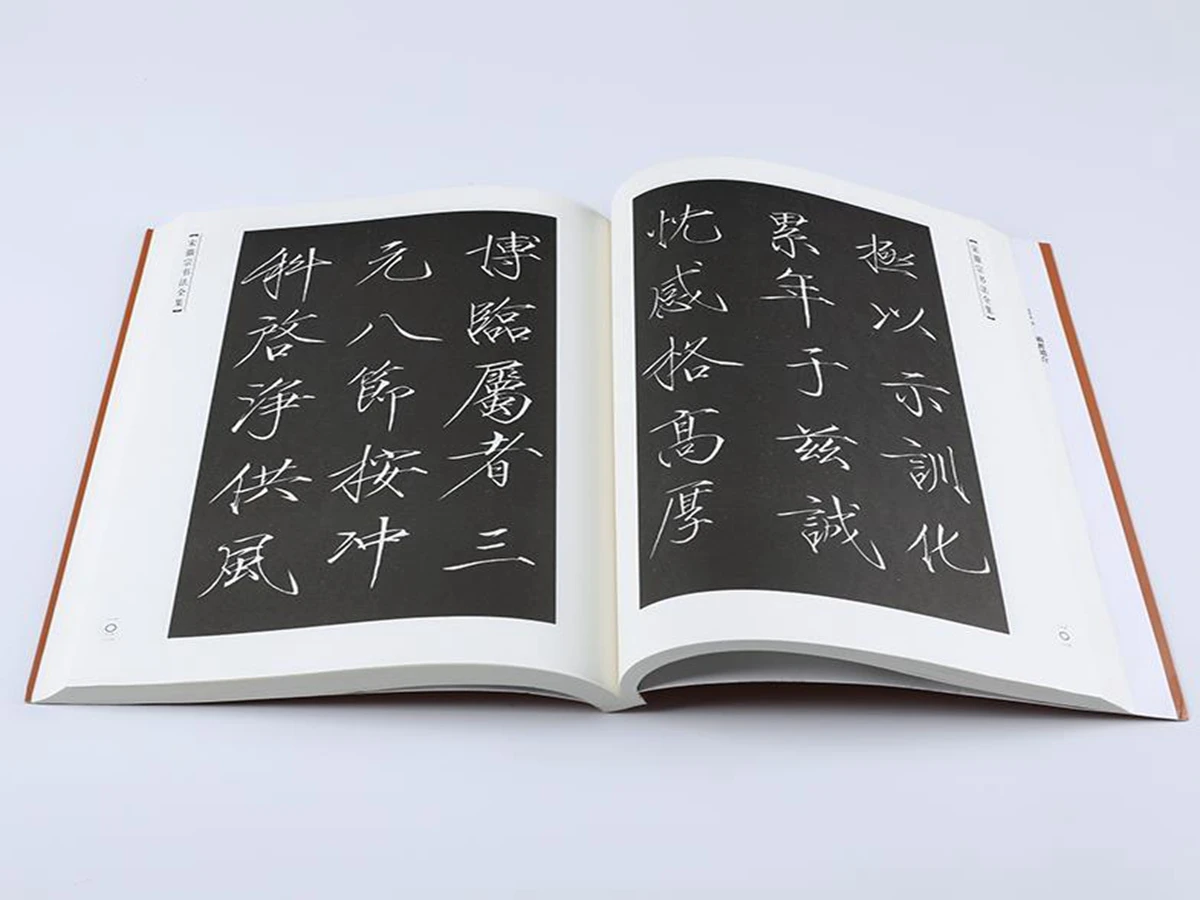 【宋徽宗书法全集】
極以示訓化
累年于兹誠
忱感格高厚
博臨屬者三
元八節按沖
科啓淨供風
【宋徽宗书法全集】